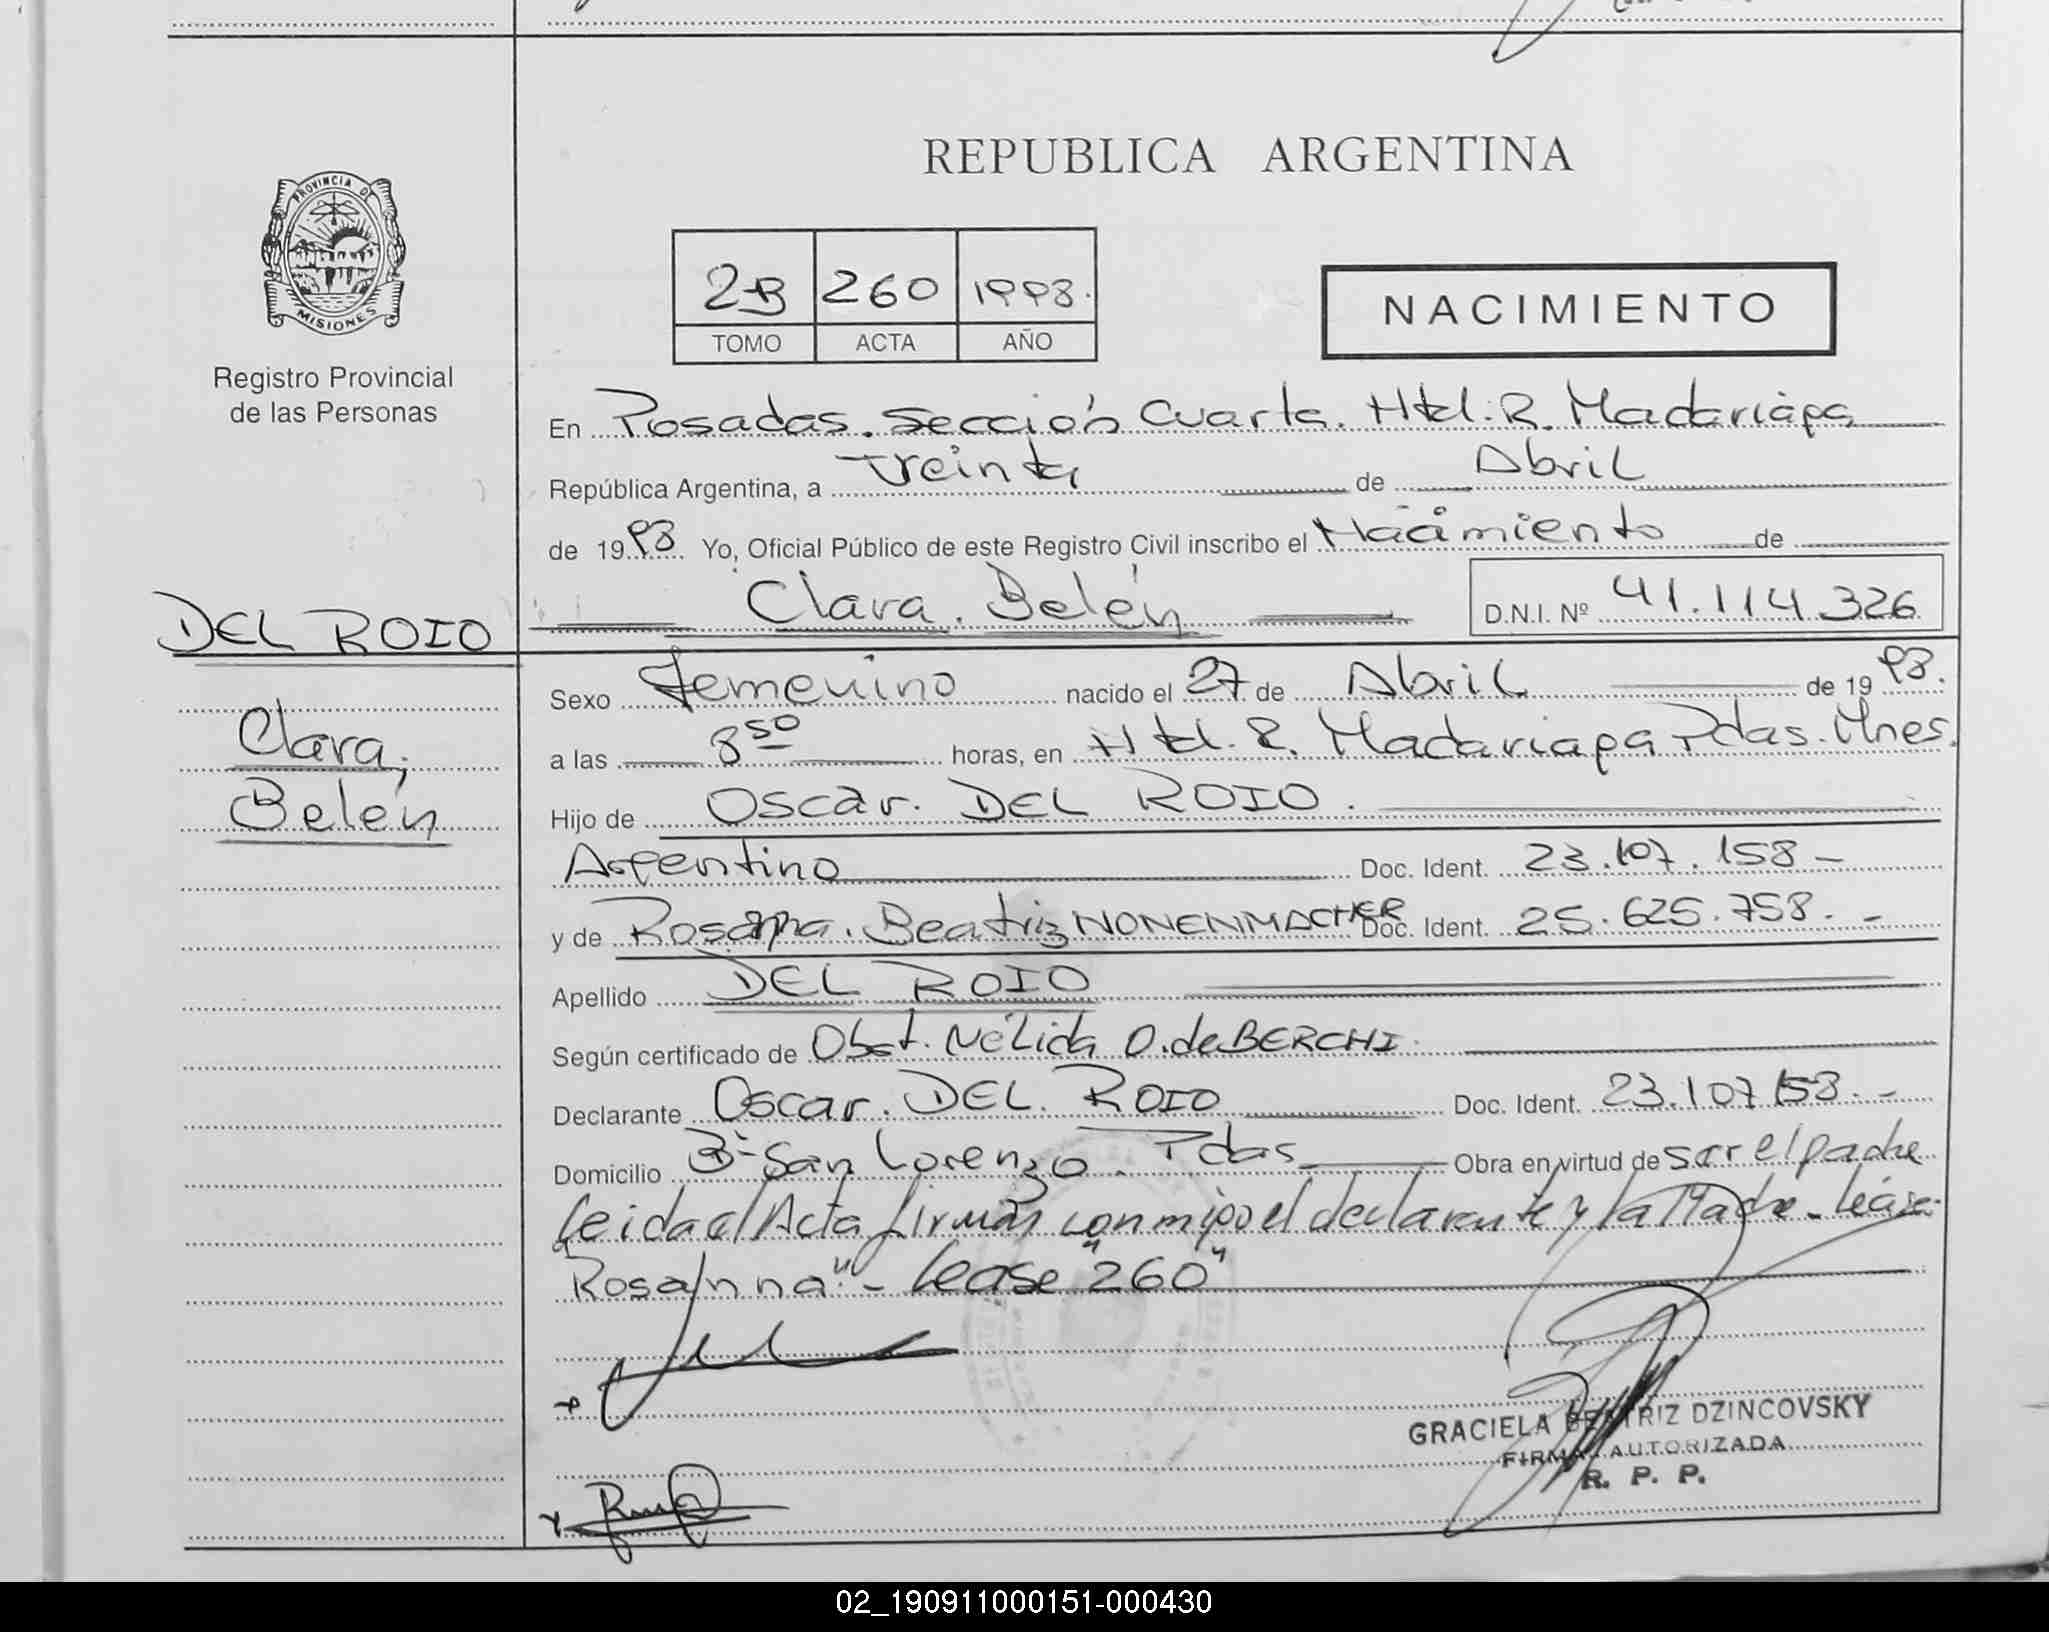 REPUBLICA ARGENTINA
PROVINCIA DE
MISIONES
Registro Provincial
de las Personas
2B 260 1998.
TOMO ACTA AÑO
NACIMIENTO
En Posadas. Sección Cuarta. Htal. R. Madariaga
República Argentina, a treinta de Abril
de 1998 Yo, Oficial Público de este Registro Civil inscribo el Nacimiento de
Clara. Belén D.N.I. Nº 41.114.326
DEL ROIO
Clara,
Belén
Sexo femenino nacido el 27 de Abril de 1998.
a las 8 50 horas, en Htal. R. Madariaga Pdas. Mnes.
Hijo de Oscar. DEL ROIO.
Argentino Doc. Ident. 23.107.158-
y de Rosanna. Beatriz NONENMACHER Doc. Ident. 25.625.758.-
Apellido DEL ROIO
Según certificado de Obst. Nélida O. de BERCHI.
Declarante Oscar. DEL. ROIO Doc. Ident. 23.107158.-
Domicilio Bº San Lorenzo. Pdas Obra en virtud de ser el padre
Leida el Acta firman conmigo el declarante y la Madre. Léase:
"Rosanna".- Lease "260"
GRACIELA BEATRIZ DZINCOVSKY
FIRMA AUTORIZADA
R. P. P.
02_190911000151-000430